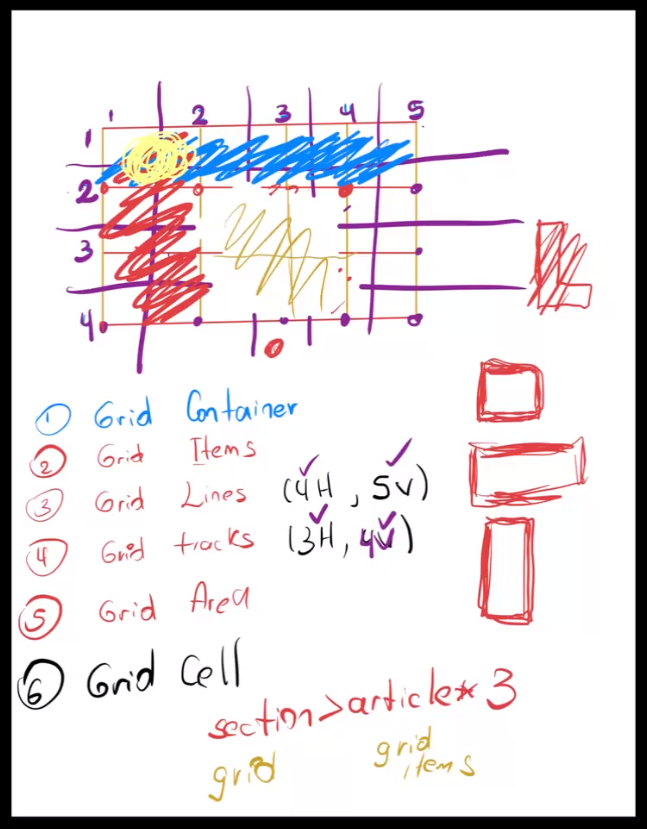 1 2 3 4 5
1
2
3
4
① Grid Container
② Grid Items
③ Grid Lines (4H, 5V)
④ Grid tracks (3H, 4V)
⑤ Grid Area
⑥ Grid Cell
section>article*3
grid grid items